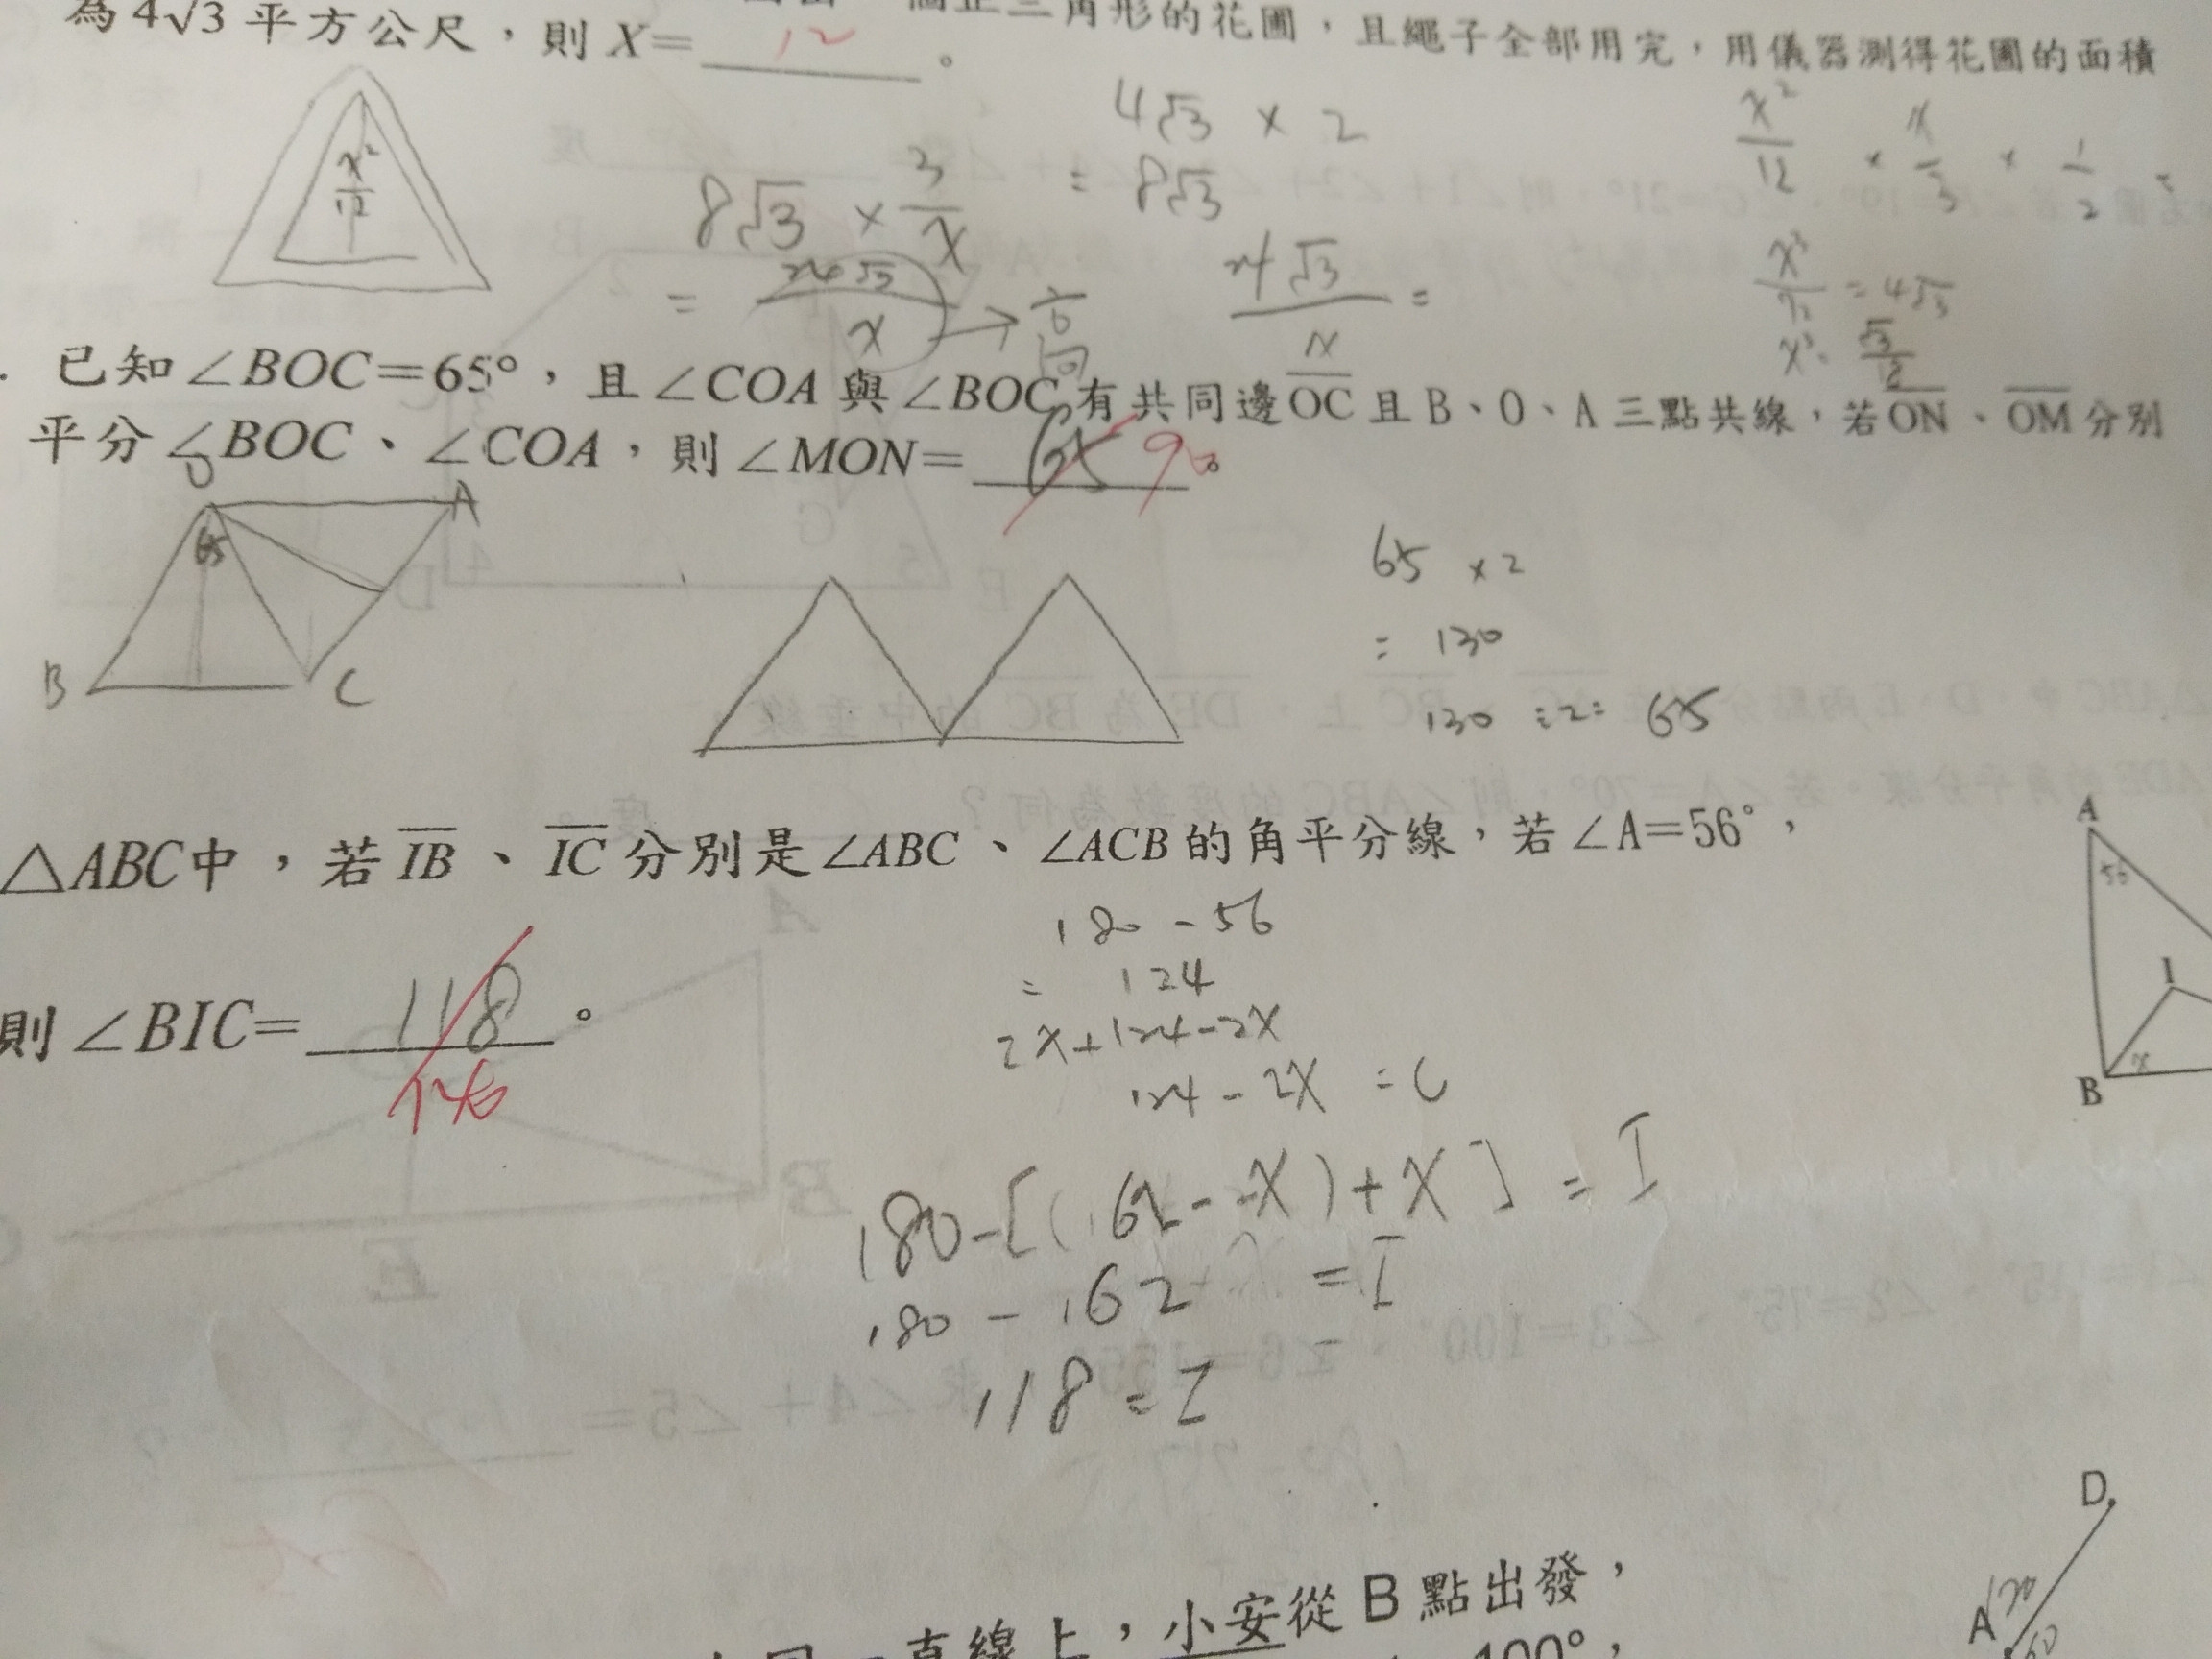 個正三角形的花圃，且繩子全部用完，用儀器測得花圃的面積
為4√3平方公尺，則X= 12 。
x²/12
4√3 × 2
= 8√3
8√3 × 3/x
= 24√3/x → 高
24√3/x =
x²/12 × x/3 × 1/2 =
x³/72 = 4√3
已知∠BOC=65°，且∠COA與∠BOC有共同邊OC且B、O、A三點共線，若ON、OM分別
平分∠BOC、∠COA，則∠MON= 65 90。
O
A
65
B
C
65 × 2
= 130
130 ÷ 2 = 65
△ABC中，若IB、IC分別是∠ABC、∠ACB的角平分線，若∠A=56°，
則∠BIC= 118 。
180 - 56
= 124
2x+124-2x
124 - 2x = C
180-[(62-x)+x] = I
180 - 62 = I
118 = I
A
56
I
B
x
D
A
直線上，小安從B點出發，
100°，